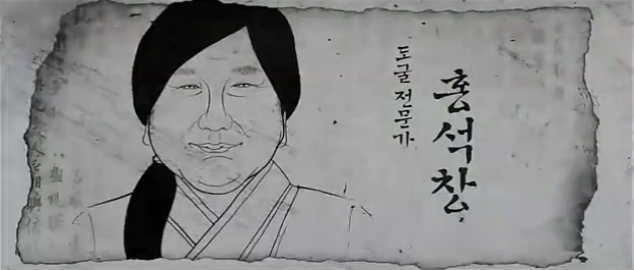 도굴 전문가
홍석창